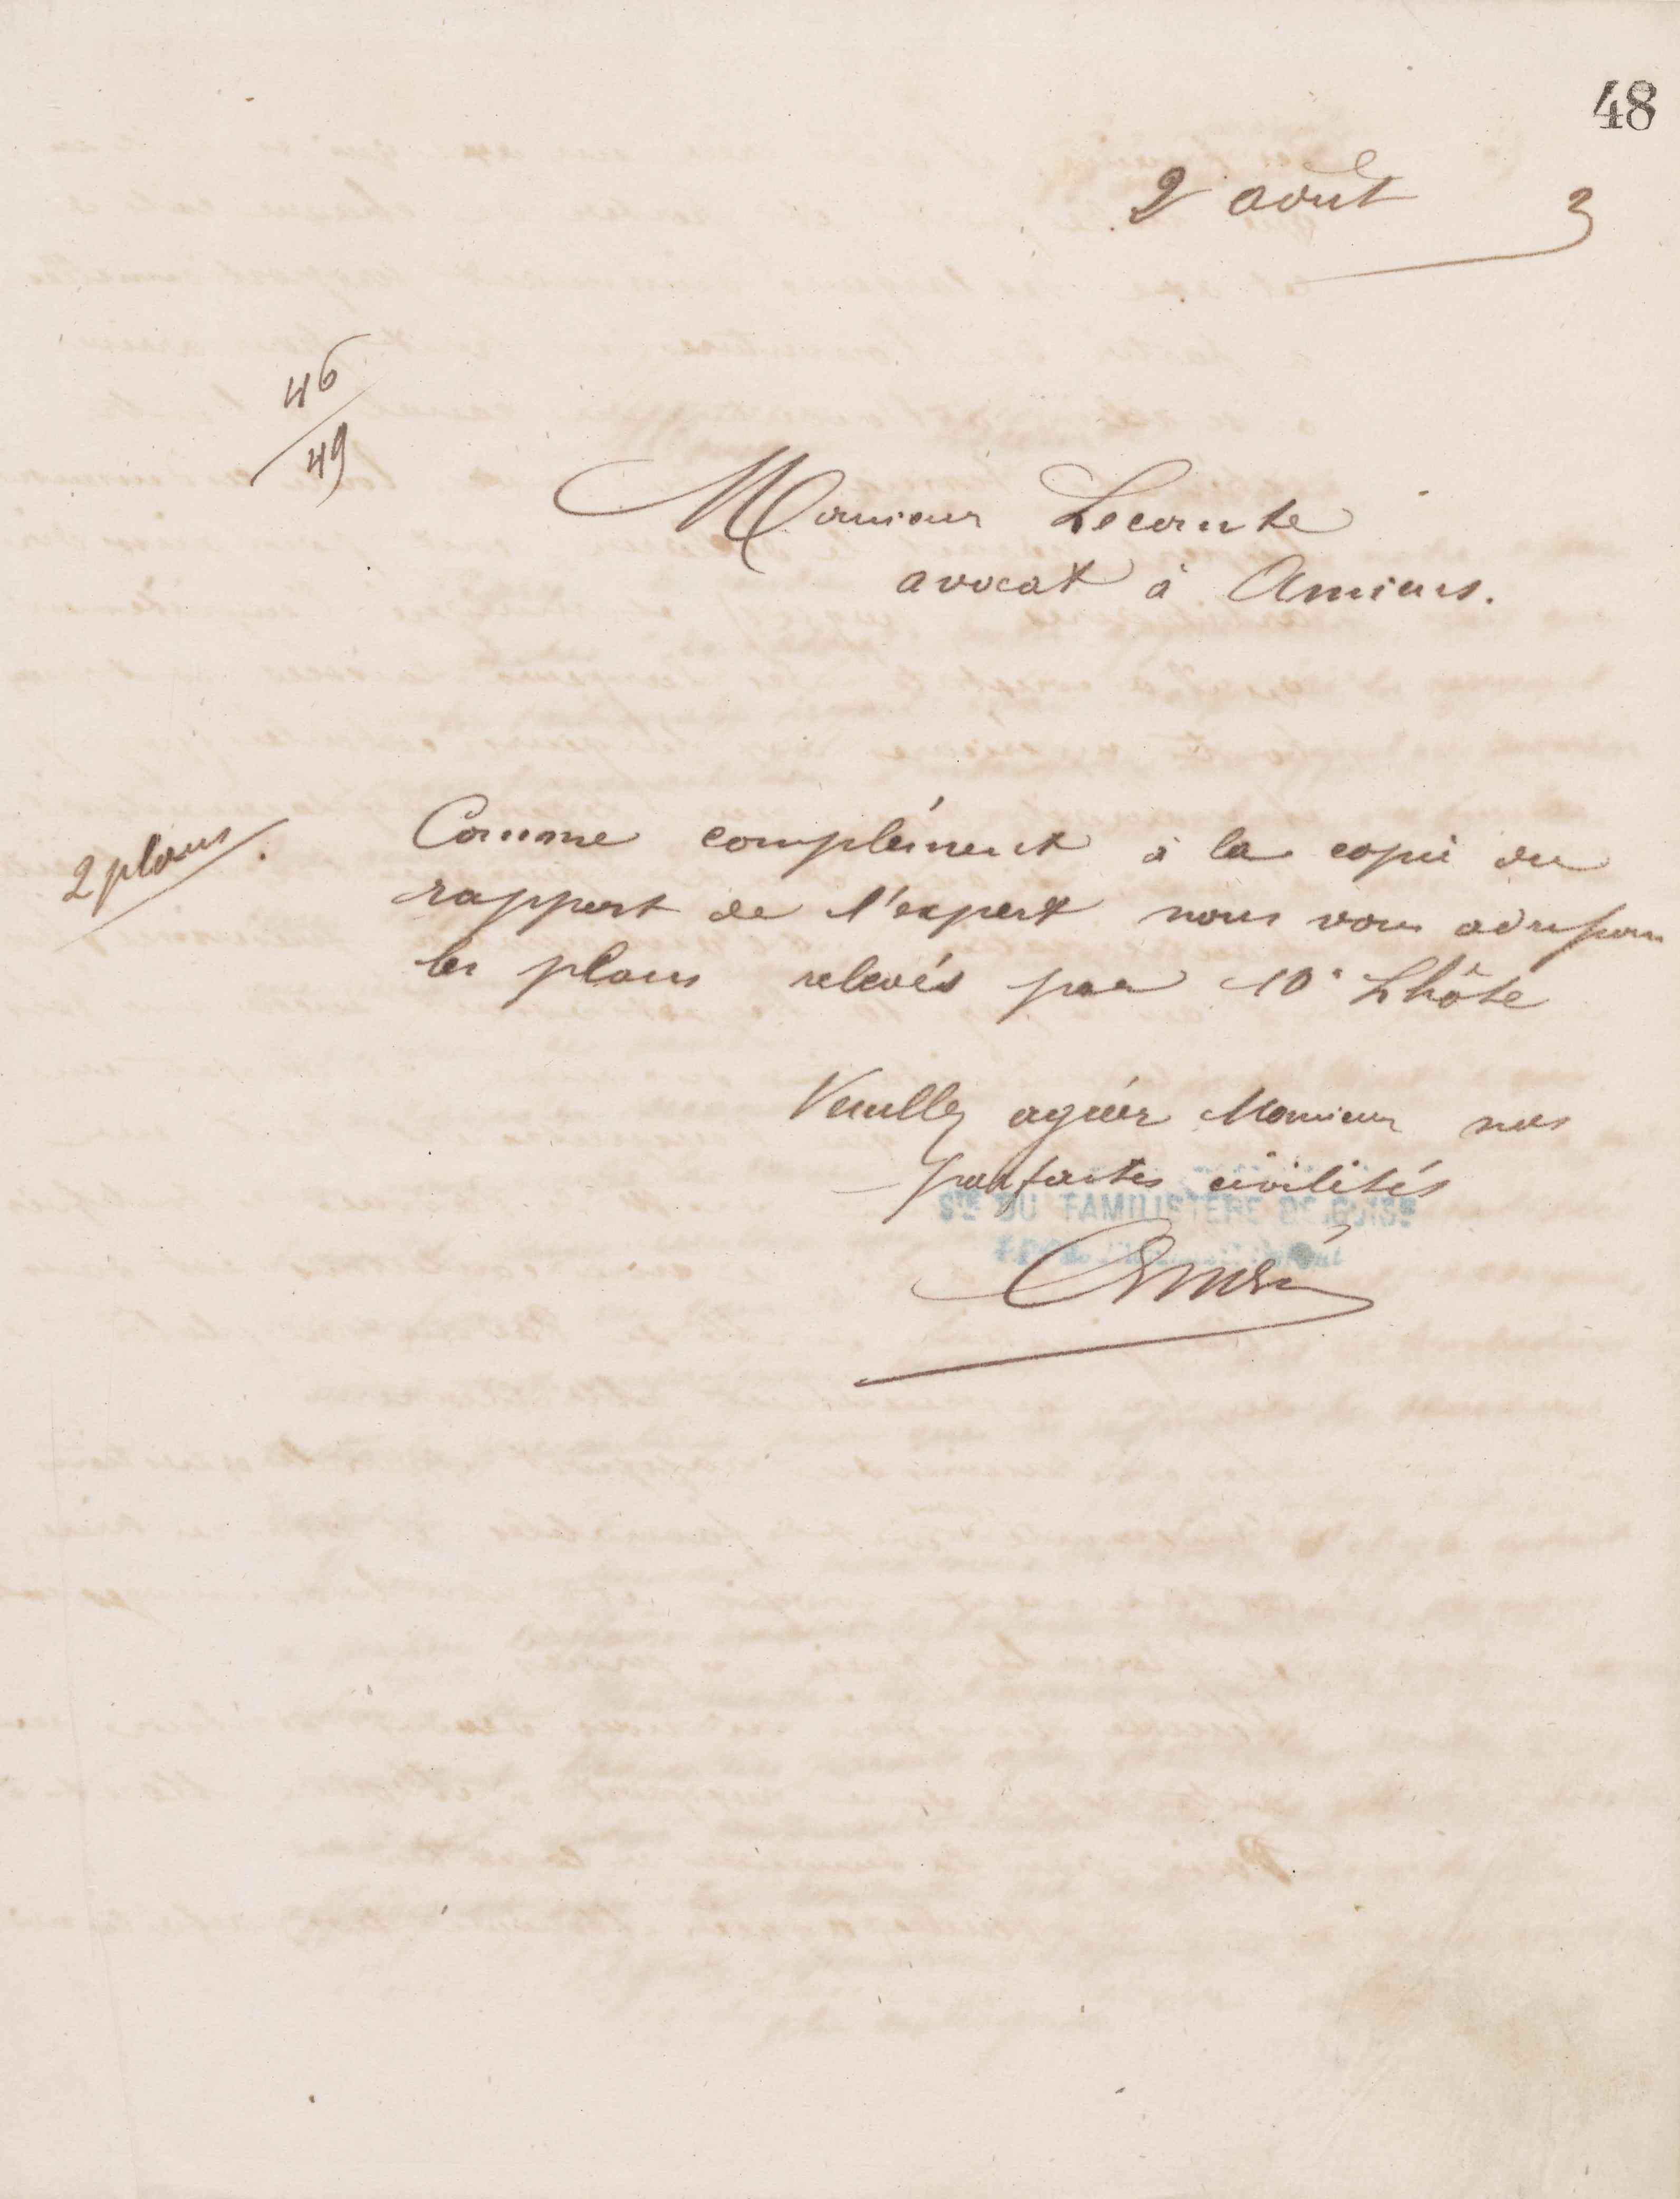 48
2 août 3
46
49
Monsieur Lecointe
avocat à Amiens.
2 plans.
Comme complément à la copie du
rapport de l'expert nous vous adressons
les plans relevés par Mr Lhôte
Veuillez agréer Monsieur nos
parfaites civilités
Sté DU FAMILISTÈRE DE GUISE